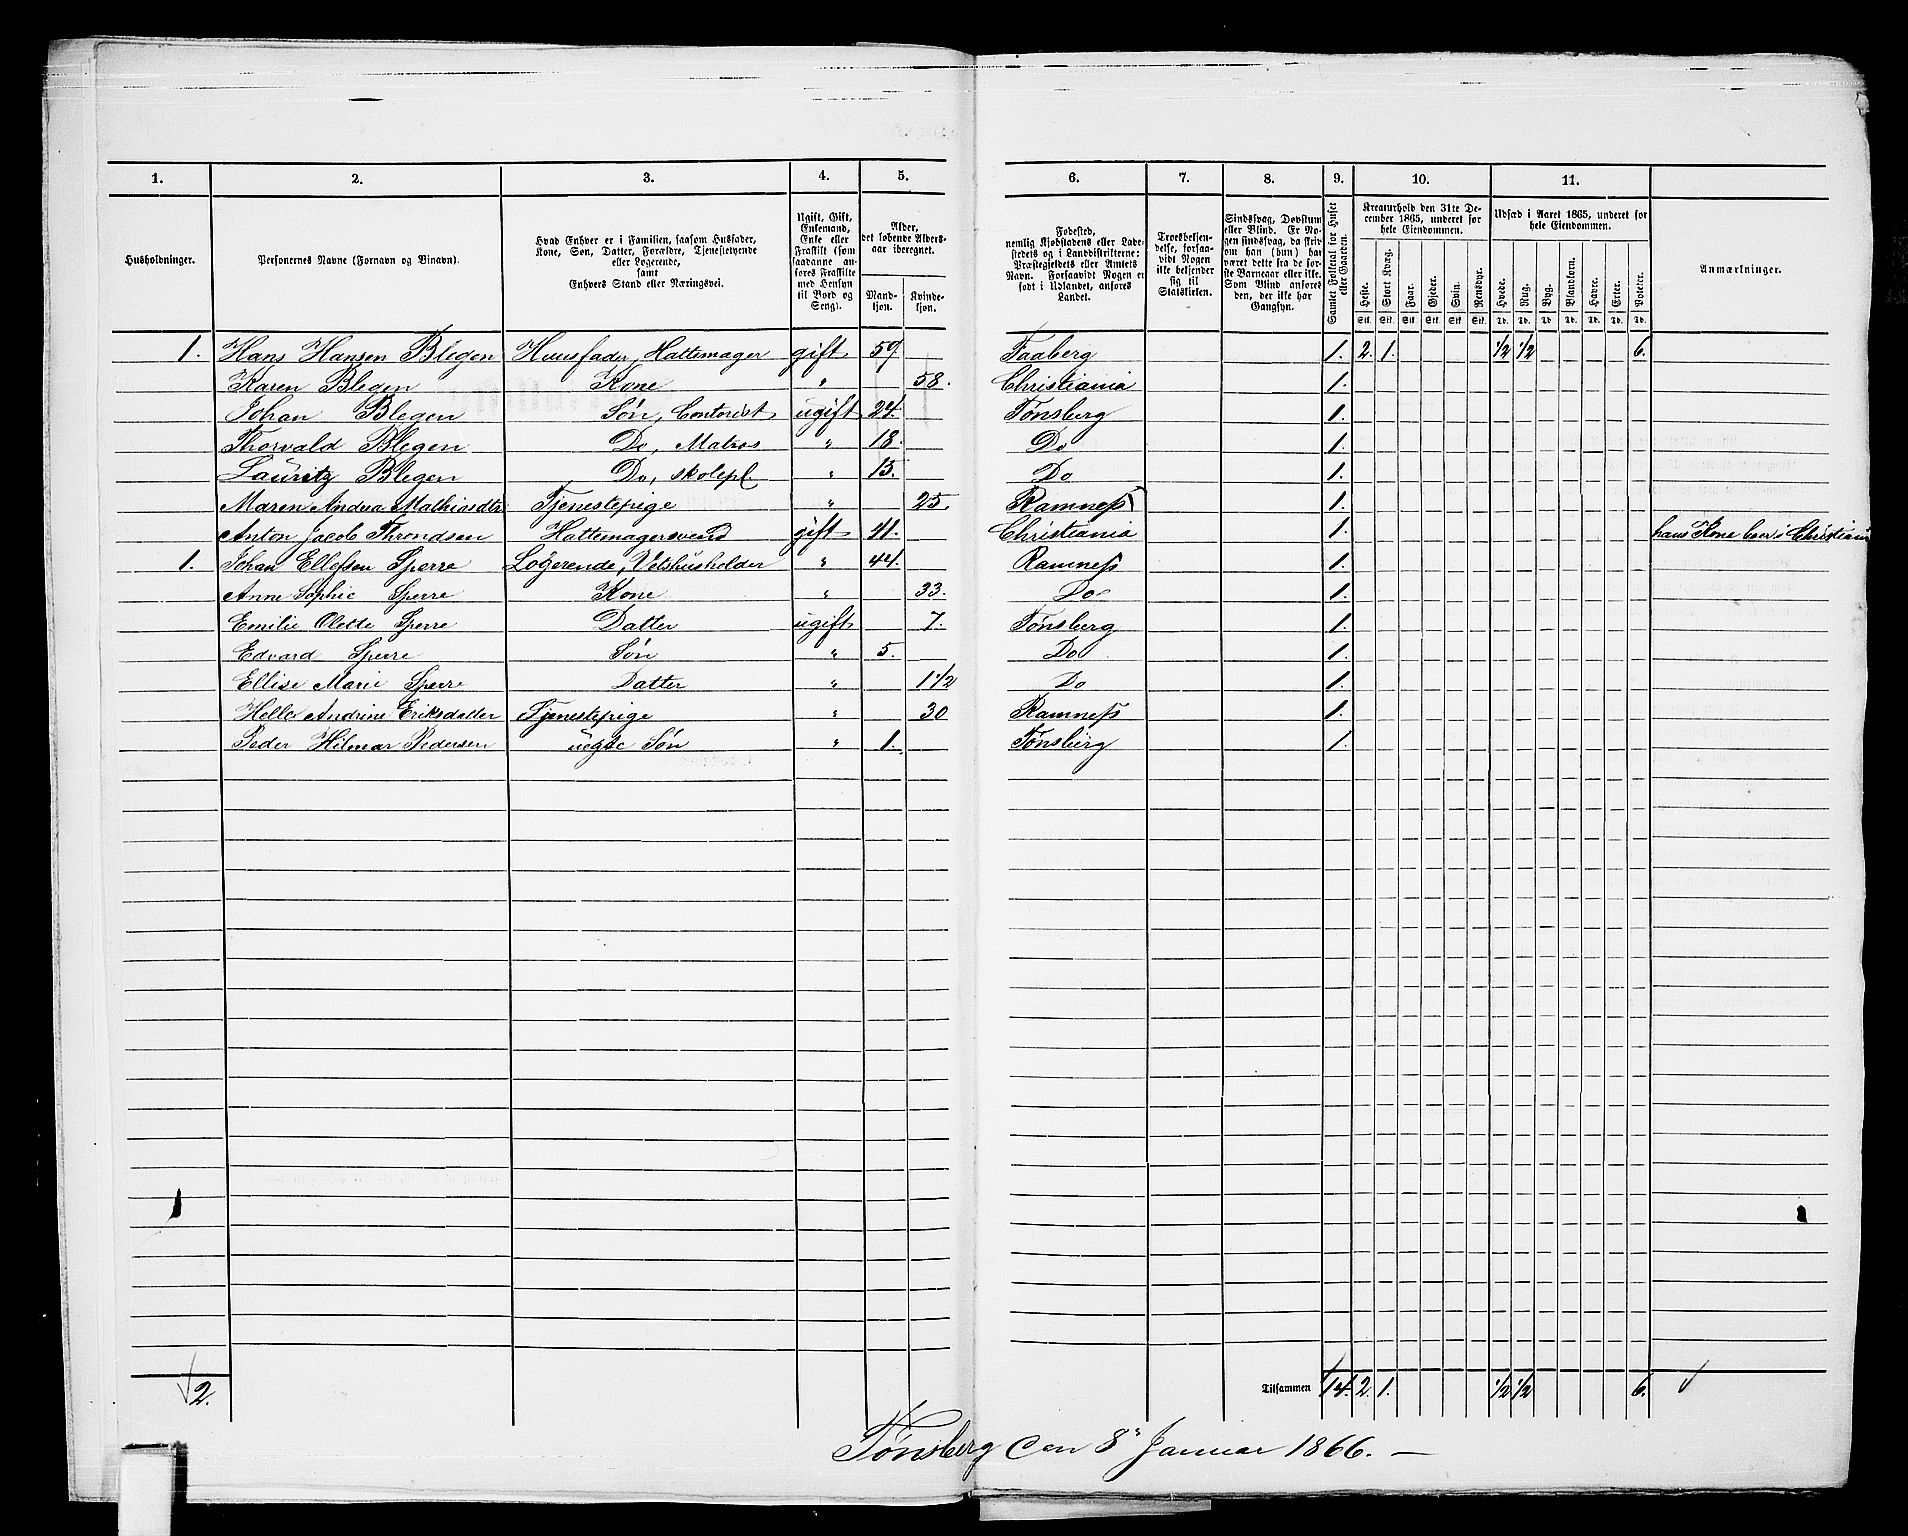 1. 2. 3. 4. 5. 6. 7. 8. 9. 10. 11.
Husholdninger.
Personernes Navne (Fornavn og Binavn).
Hvad Enhver er i Familien, saasom Husfader,
Kone, Søn, Datter, Forældre, Tjenestetyende
eller Logerende,
samt
Enhvers Stand eller Næringsvei.
Ugift, Gift,
Enkemand,
Enke eller
Fraskilt (som
saadanne an-
føres Fraskilte
med Hensyn
til Bord og
Seng).
Alder,
det løbende Alders-
aar iberegnet.
Mand-
kjøn.
Kvinde-
kjøn.
Fødested,
nemlig Kjøbstadens eller Lade-
stedets og i Landdistrikterne:
Præstegjeldets eller Amtets
Navn. Forsaavidt Nogen er
født i Udlandet, anføres
Landet.
Troesbekjen-
delse, forsaa-
vidt Nogen
ikke bekjender
sig til
Statskirken.
Sindssvag, Døvstum
eller Blind. Er No-
gen sindssvag, da skriv
om han (hun) har
været dette fra de før-
ste Barneaar eller ikke.
Som Blind anføres
den, der ikke har
Gangsyn.
Samlet Folketal for Huset
eller Gaarden.
Kreaturhold den 31te De-
cember 1865, underet for
hele Eiendommen.
Heste. Stort Kvæg. Faar. Gjeder. Svin. Rensdyr.
Stk. Stk. Stk. Stk. Stk. Stk.
Udsæd i Aaret 1865, underet for
hele Eiendommen.
Hvede. Rug. Byg. Blandkorn. Havre. Erter. Poteter.
Td. Td. Td. Td. Td. Td. Td.
Anmærkninger.
1. Hans Hansen Blegen Huusfader, Hattemager gift 59 Faaberg 1. 2. 1. 1/2 1/2 6.
Karen Blegen Kone " 58. Christiania 1.
Johan Blegen Søn, Contorist ugift 24. Tønsberg 1.
Thorvald Blegen Do, Matros " 18. Do 1.
Lauritz Blegen Do, skolepl. " 15. Do 1.
Maren Andrea Mathiasdtr Tjenestepige " 25 Ramness 1.
Anton Jacob Throndsen Hattemagersvend gift 41. Christiania 1. hans Kone boer i Christiania
1. Johan Ellefsen Sperre Logerende, Vetshusholder " 44. Ramness 1.
Anne Sophie Sperre Kone " 33. Do 1.
Emilie Olette Sperre Datter ugift 7. Tønsberg 1.
Edvard Sperre Søn " 5. Do 1.
Ellise Marie Sperre Datter " 1 1/2 Do 1.
Helle Andrine Eriksdatter Tjenestepige " 30 Ramness 1.
Peder Hilmar Pedersen uegte Søn " 1. Tønsberg 1.
2. Tilsammen 14. 2. 1. 1/2 1/2 6.
Tønsberg den 8 Januar 1866.